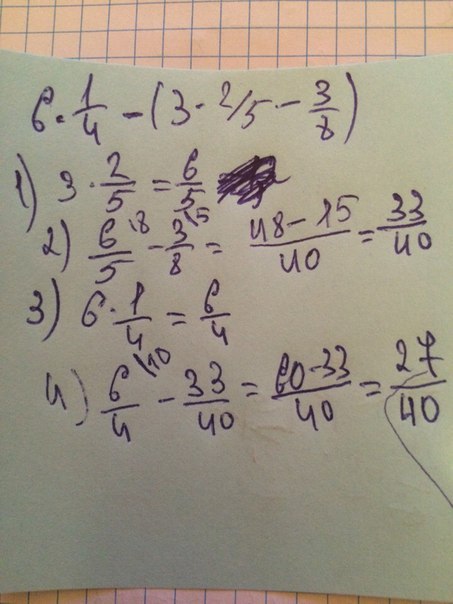 6 · 1/4 - (3 · 2/5 - 3/8)
1) 3 · 2/5 = 6/5
2) 6/5 \8 - 3/8 \5 = 48 - 15/40 = 33/40
3) 6 · 1/4 = 6/4
4) 6/4 \10 - 33/40 = 60-33/40 = 27/40